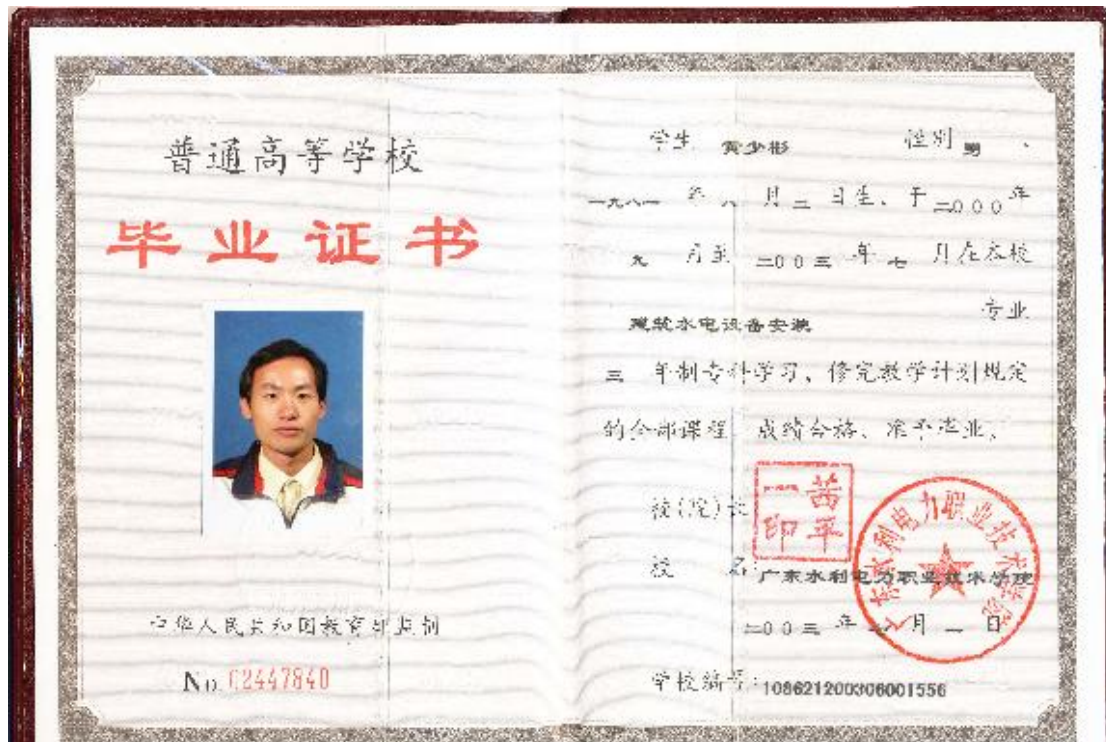 普通高等学校
毕业证书
中华人民共和国教育部监制
No. 02447840
学生 黄少彬 性别 男 、
一九八一 年 八 月 三 日生、于 二000 年
九 月至 二00三 年 七 月在本校
建筑水电设备安装 专业
三 年制专科学习、修完教学计划规定
的全部课程 成绩合格、准予毕业。
校(院)长
茜平一印
校 名:广东水利电力职业技术学院
广东水利电力职业技术学院
二00三 年 月 一 日
学校编号:108621200306001556